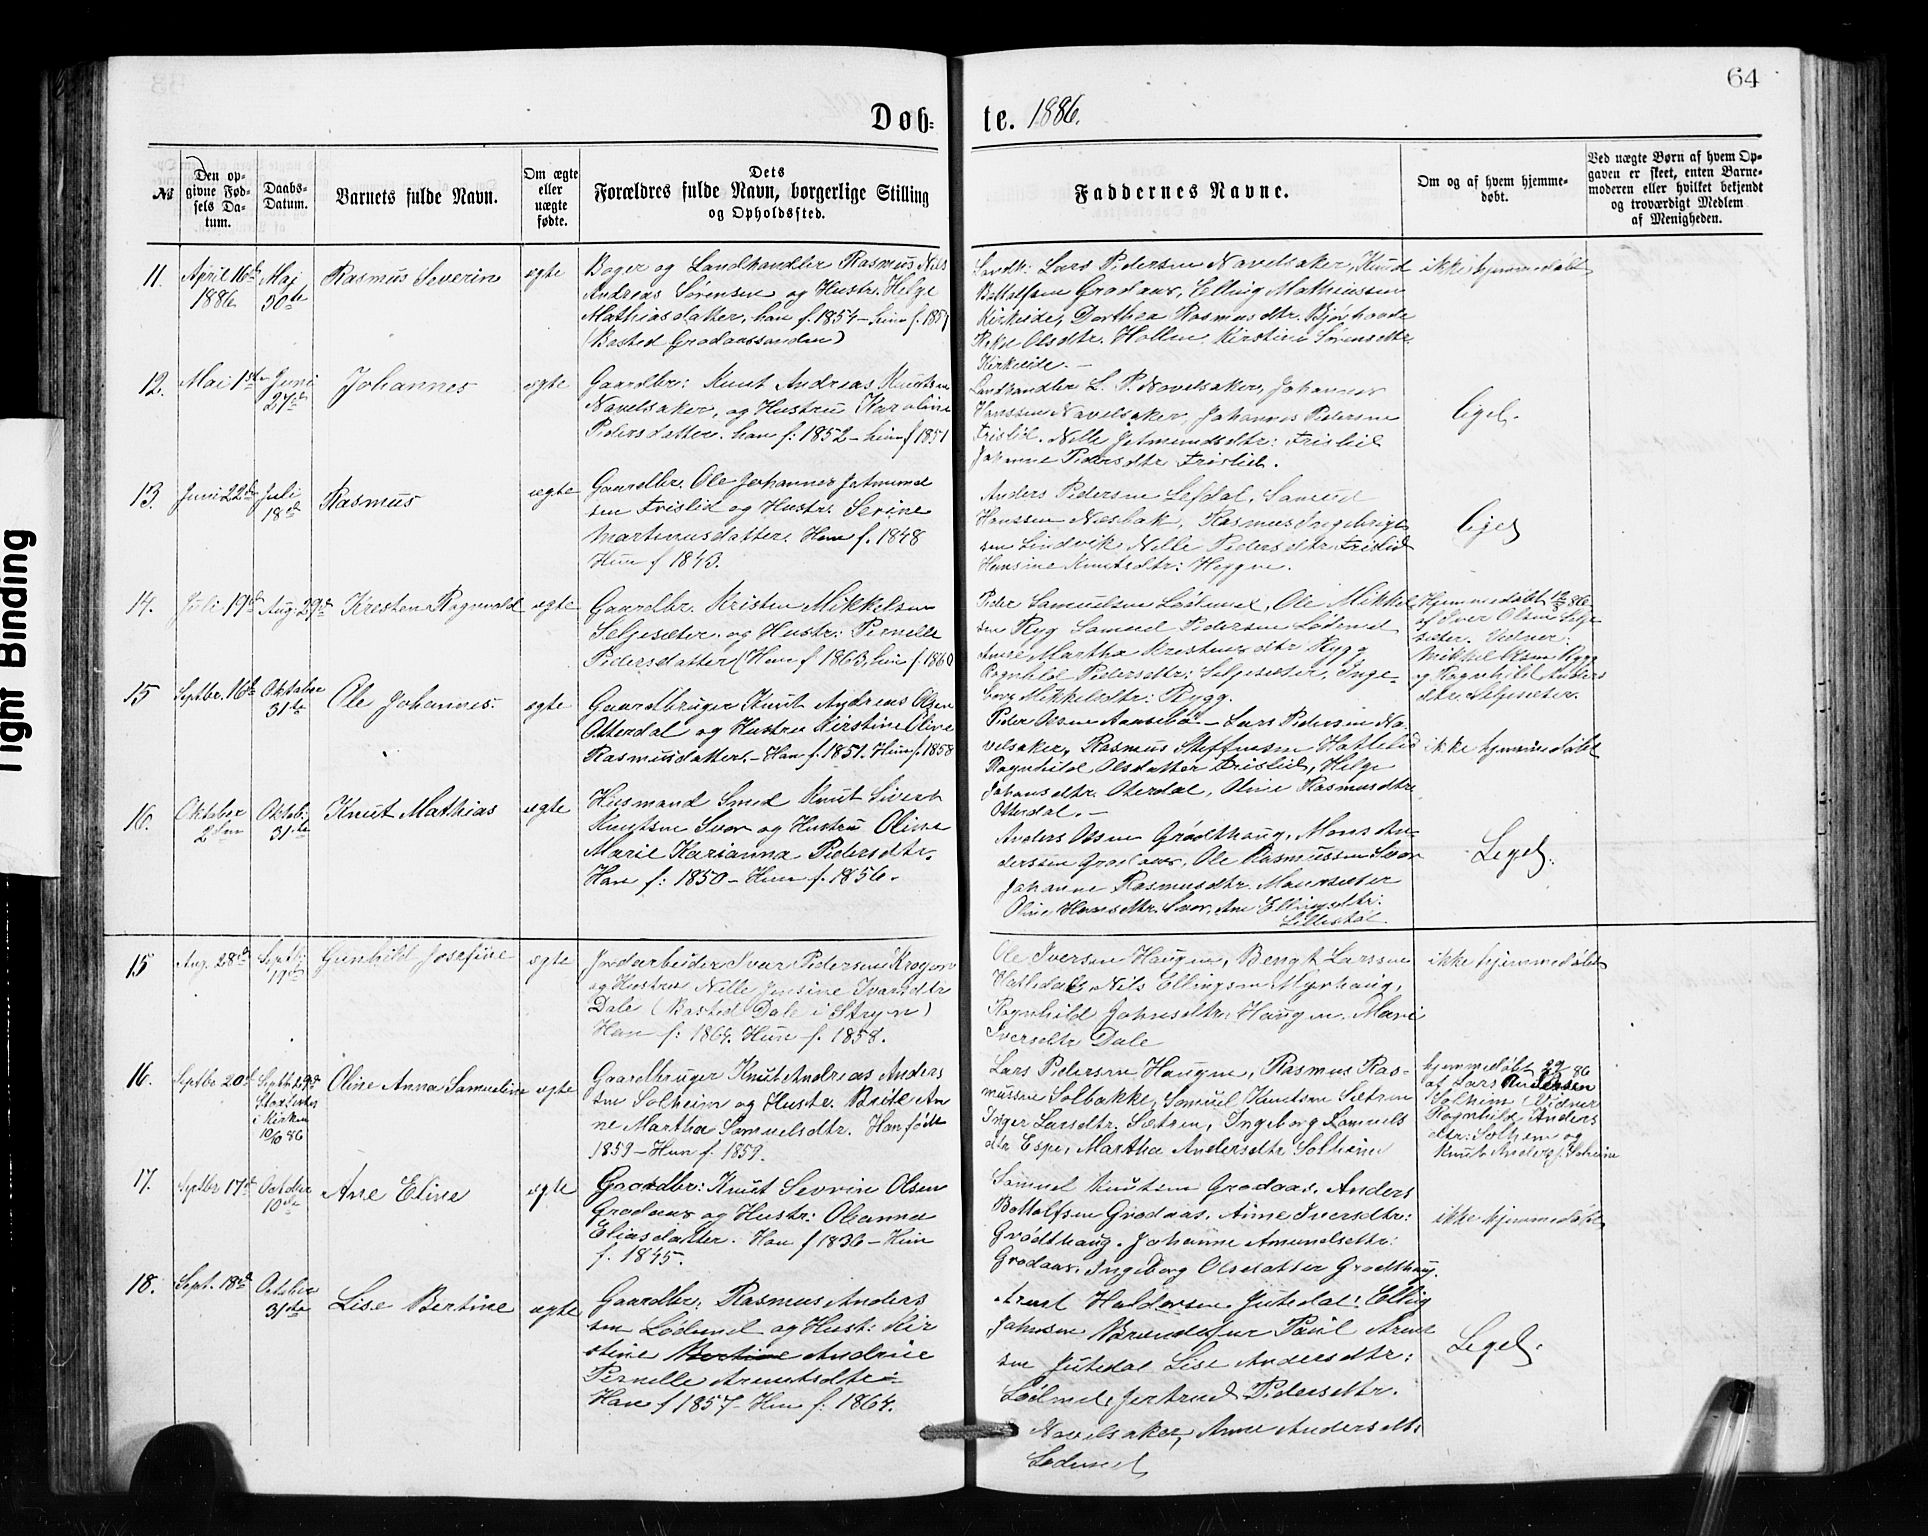 64
Døb-
te. 1886.
№
Den op-
givne Fød-
sels Da-
tum.
Daabs-
Datum.
Barnets fulde Navn.
Om ægte
eller
uægte
fødte.
Dets
Forældres fulde Navn, borgerlige Stilling
og Opholdssted.
Faddernes Navne.
Om og af hvem hjemme-
døbt.
Ved uægte Børn af hvem Op-
gaven er skeet, enten Barne-
moderen eller hvilket bekjendt
og troværdigt Medlem
af Menigheden.
11.
April 16de
1886
Maj
30te
Rasmus Severin
ægte
Bager og Landhandler Rasmus Nils
Andreas Sørensen og Hustr. Helge
Mathiasdatter, han f. 1854 – hun f. 185
(Bosted Grodaassanden)
Landh: Lars Pedersen Navelsaker, Knud
Bottolfsen Grodaas, Elling Mathiassen
Kirkeide, Dorthea Rasmusdtr.
Olsdtr. Hollen, Kirstine Sørensdtr.
Kirkeide. –
ikke hjemmedøbt
12.
Mai 1ste
Juni
27de
Johannes
ægte
Gaardbr: Knut Andreas Knutsen
Navelsaker, og Hustru Karoline
Pedersdatter. han f: 1852 – hun f 1851
Landhandler L. P. Navelsaker, Johannes
Hanssen Navelsaker, Johannes Pedersen
Frislid. Nille Jetmundsdtr: Frislid
Johanne Pedersdtr Frislid.
ligel.
13.
Juni 22de
Juli
18de
Rasmus
ægte
Gaardbr. Ole Johannes Jetmund
sen Frislid og Hustr. Serine
Martinusdatter. Han f. 1848
Hun f 1843.
Anders Pedersen Lefdal, Samuel
Hanssen Næsbak, Rasmus Ingebrigt
sen Lindvik Nille Pedersdtr Frislid
Hansine Knutsdtr: Heggen.
ligel
14.
Juli 19de
Aug. 29de
Kresten Ragnvald
ægte
Gaardbr. Kristen Mikkelsen
Seljesæter. og Hustr: Pernille
Pedersdatter (Han f 1863, hun f. 1860
Peder Samuelsen Lødemel, Ole Mikkel
sen Ryg Samuel Pedersen Lødemel
Anne Martha Kristensdtr Rygg
Ragnhild Pedersdtr: Seljesæter, Inge-
borg Mikkelsdtr: Rygg.
Hjemmedøbt 86
af Iver Olsen Selje
sæter. Vidner:
Mikkel Olsen Rygg
og Ragnhild Anders
dtr. Seljesæter.
15
Septbr. 16de
Oktober
31te
Ole Johannes.
ægte
Gaardbruger Knut Andreas Olsen
Otterdal og Hustru Kirstine Oline
Rasmusdatter. – Han f. 1851. Hun f. 1858
Peder Olsen Aaasebø – Lars Pedersen Na
velsaker, Rasmus Steffensen Hatlelid
Ragnhild Olsdatter Frislid, Helge
Johansdtr. Oterdal, Oline Rasmusdtr
Otterdal. –
ikke hjemmedøbt
16.
Oktober
2den
Oktob.
31te
Knut Mathias
ægte
Husmand Smed Knut Sivert
Knutsen Svor og Hustru Oline
Marie Karianna Pedersdtr.
Han f: 1850 – Hun f. 1856.
Anders Olsen Grødthaug. Mons An-
derssen Grodaas, Ole Rasmussen Svor
Johanne Rasmusdtr.
Oline Hansdtr. Svor, Ane Ellingsdtr:
Lillestøl
Ligel.
15
Aug. 28de
Septb.
19de
Gunhild Josefine
ægte
Jordarbeider Ivar Pedersen
og Hustru Nille Jensine Ivarsdtr
Dale (Bosted Dale i Stryn)
Han f: 1864. Hun f. 1858.
Ole Iversen Haugen, Bengt Larssen
Hatledal Nils Ellingsen Myrhaug,
Ragnhild Johnsdtr: Haugen. Mari
Iversdtr Dale
ikke hjemmedøbt
16.
Septbr 20de
i Kirken
10/10 86
Oline Anna Samueline
ægte
Gaardbruger Knut Andreas Anders
sen Solheim og Hustr. Brite An
ne Martha Samuelsdtr. Han født
1859 – Hun f. 1859.
Lars Pedersen Haugen, Rasmus Ras-
mussen Solbakke, Samuel Knutsen Sætren
Inger Larsdtr. Sætren, Ingeborg Samuels
dtr Espe, Martha Andersdtr Solheim
hjemmedøbt 86
af Lars Andersen
Solheim Vidner
Ragnhild Anders
dtr: Solheim og
Knut Anders. Solheim
17.
Septbr 17de
October
10de
Ane Eline
ægte
Gaardbr: Knut Sevrin Olsen
Grodaas og Hustr: Oleanna
Eliasdatter. Han f 1836 – Hun
f. 1845.
Samuel Knutsen Grodaas, Anders
Bottolfsen Grodaas, Anne Iversdtr:
Grødthaug. Johanne Amundsdtr:
Grodaas, Ingeborg Olsdatter Grødthaug.
ikke hjemmedøbt
18.
Sept. 18de
October
31te
Lise Bertine
ægte
Gaardbr: Rasmus Anders
sen Lødemel og Hust: Kir
stine Bertine Andrine
Pernille Arentsdtr
Han f 1857 – Hun f: 1864.
Arent Haldorsen Jutedal. Elling
Johnsen Paul Arent
sen Jutedal Lise Andersdtr:
Lødemel, Jertrud Pedersdtr.
Navelsaker, Anne Andersdtr.
Lødemel
Ligel.
Tight Binding